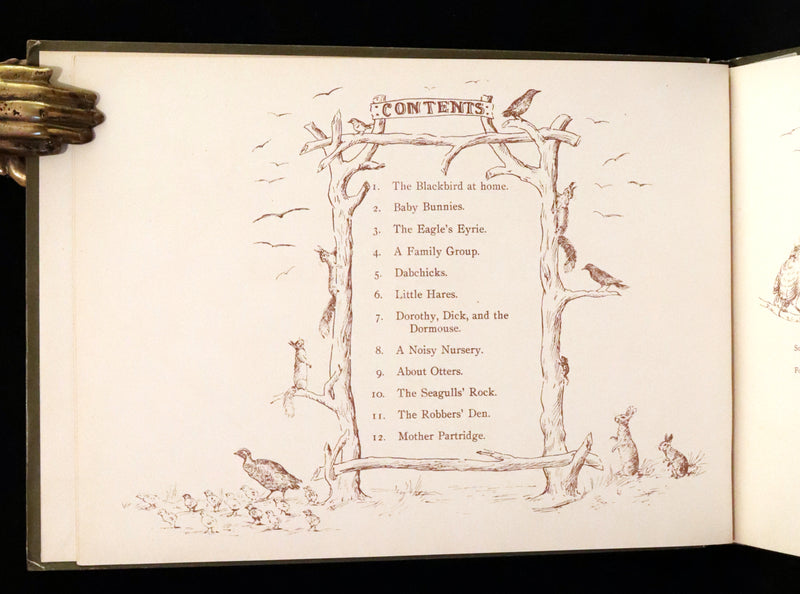 CONTENTS
1. The Blackbird at home.
2. Baby Bunnies.
3. The Eagle's Eyrie.
4. A Family Group.
5. Dabchicks.
6. Little Hares.
7. Dorothy, Dick, and the
Dormouse.
8. A Noisy Nursery.
9. About Otters.
10. The Seagulls' Rock.
11. The Robbers' Den.
12. Mother Partridge.